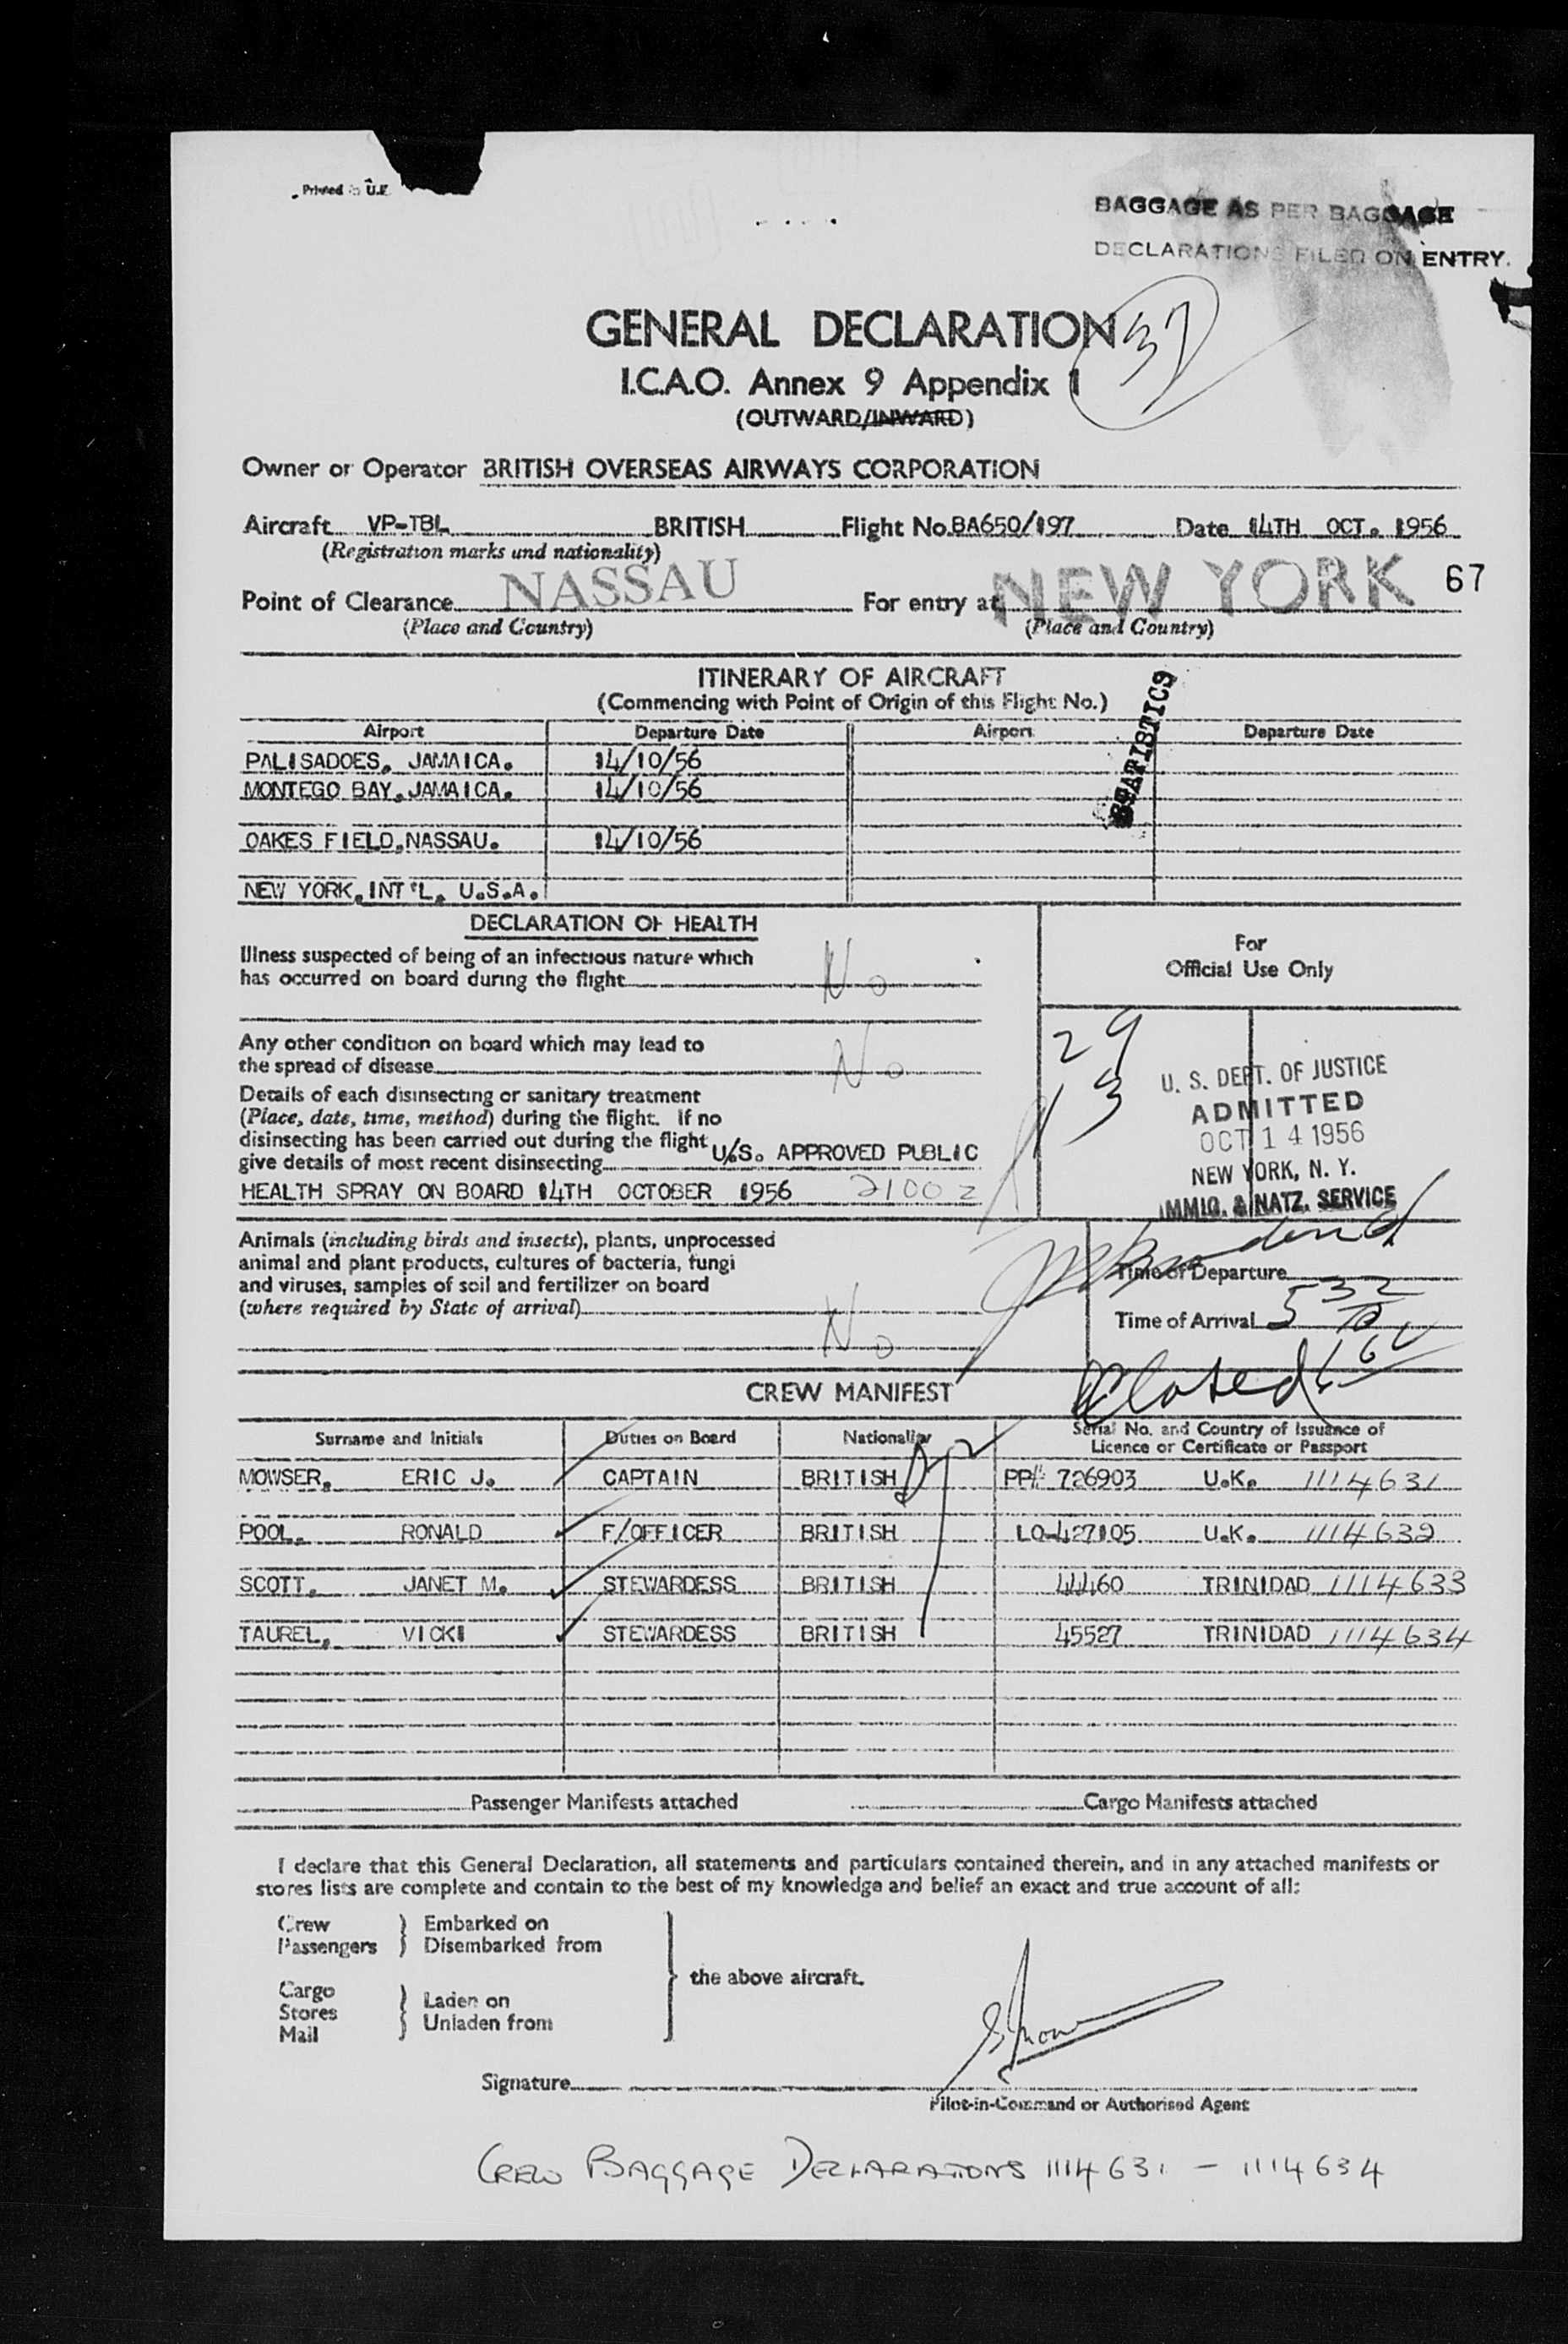 Printed in U.K.
BAGGAGE AS PER BAGGAGE
DECLARATIONS FILED ON ENTRY.
GENERAL DECLARATION
37
I.C.A.O. Annex 9 Appendix 1
(OUTWARD/INWARD)
Owner or Operator BRITISH OVERSEAS AIRWAYS CORPORATION
Aircraft VP-TBL BRITISH Flight No. BA650/197 Date 14TH OCT. 1956
(Registration marks and nationality)
Point of Clearance NASSAU For entry at NEW YORK 67
(Place and Country) (Place and Country)
ITINERARY OF AIRCRAFT
(Commencing with Point of Origin of this Flight No.)
STATISTICS
Airport Departure Date Airport Departure Date
PALISADOES, JAMAICA. 14/10/56
MONTEGO BAY, JAMAICA. 14/10/56
OAKES FIELD, NASSAU. 14/10/56
NEW YORK, INT'L, U.S.A.
DECLARATION OF HEALTH
Illness suspected of being of an infectious nature which
has occurred on board during the flight No
Any other condition on board which may lead to
the spread of disease No
Details of each disinsecting or sanitary treatment
(Place, date, time, method) during the flight. If no
disinsecting has been carried out during the flight
give details of most recent disinsecting U.S. APPROVED PUBLIC
HEALTH SPRAY ON BOARD 14TH OCTOBER 1956 2100 Z
For
Official Use Only
29
13
U. S. DEPT. OF JUSTICE
ADMITTED
OCT 14 1956
NEW YORK, N. Y.
IMMIG. & NATZ. SERVICE
Animals (including birds and insects), plants, unprocessed
animal and plant products, cultures of bacteria, fungi
and viruses, samples of soil and fertilizer on board
(where required by State of arrival) No
Time of Departure
Time of Arrival 5 32
Closed
CREW MANIFEST
Surname and Initials Duties on Board Nationality Serial No. and Country of Issuance of
Licence or Certificate or Passport
MOWSER, ERIC J. CAPTAIN BRITISH PP# 726903 U.K. 1114631
POOL, RONALD F/OFFICER BRITISH LO-427105 U.K. 1114632
SCOTT, JANET M. STEWARDESS BRITISH 44460 TRINIDAD 1114633
TAUREL, VICKI STEWARDESS BRITISH 45527 TRINIDAD 1114634
Passenger Manifests attached Cargo Manifests attached
I declare that this General Declaration, all statements and particulars contained therein, and in any attached manifests or
stores lists are complete and contain to the best of my knowledge and belief an exact and true account of all:
Crew Embarked on
Passengers Disembarked from
the above aircraft.
Cargo Laden on
Stores Unladen from
Mail
Signature
Pilot-in-Command or Authorised Agent
CREW BAGGAGE DECLARATIONS 1114631 - 1114634